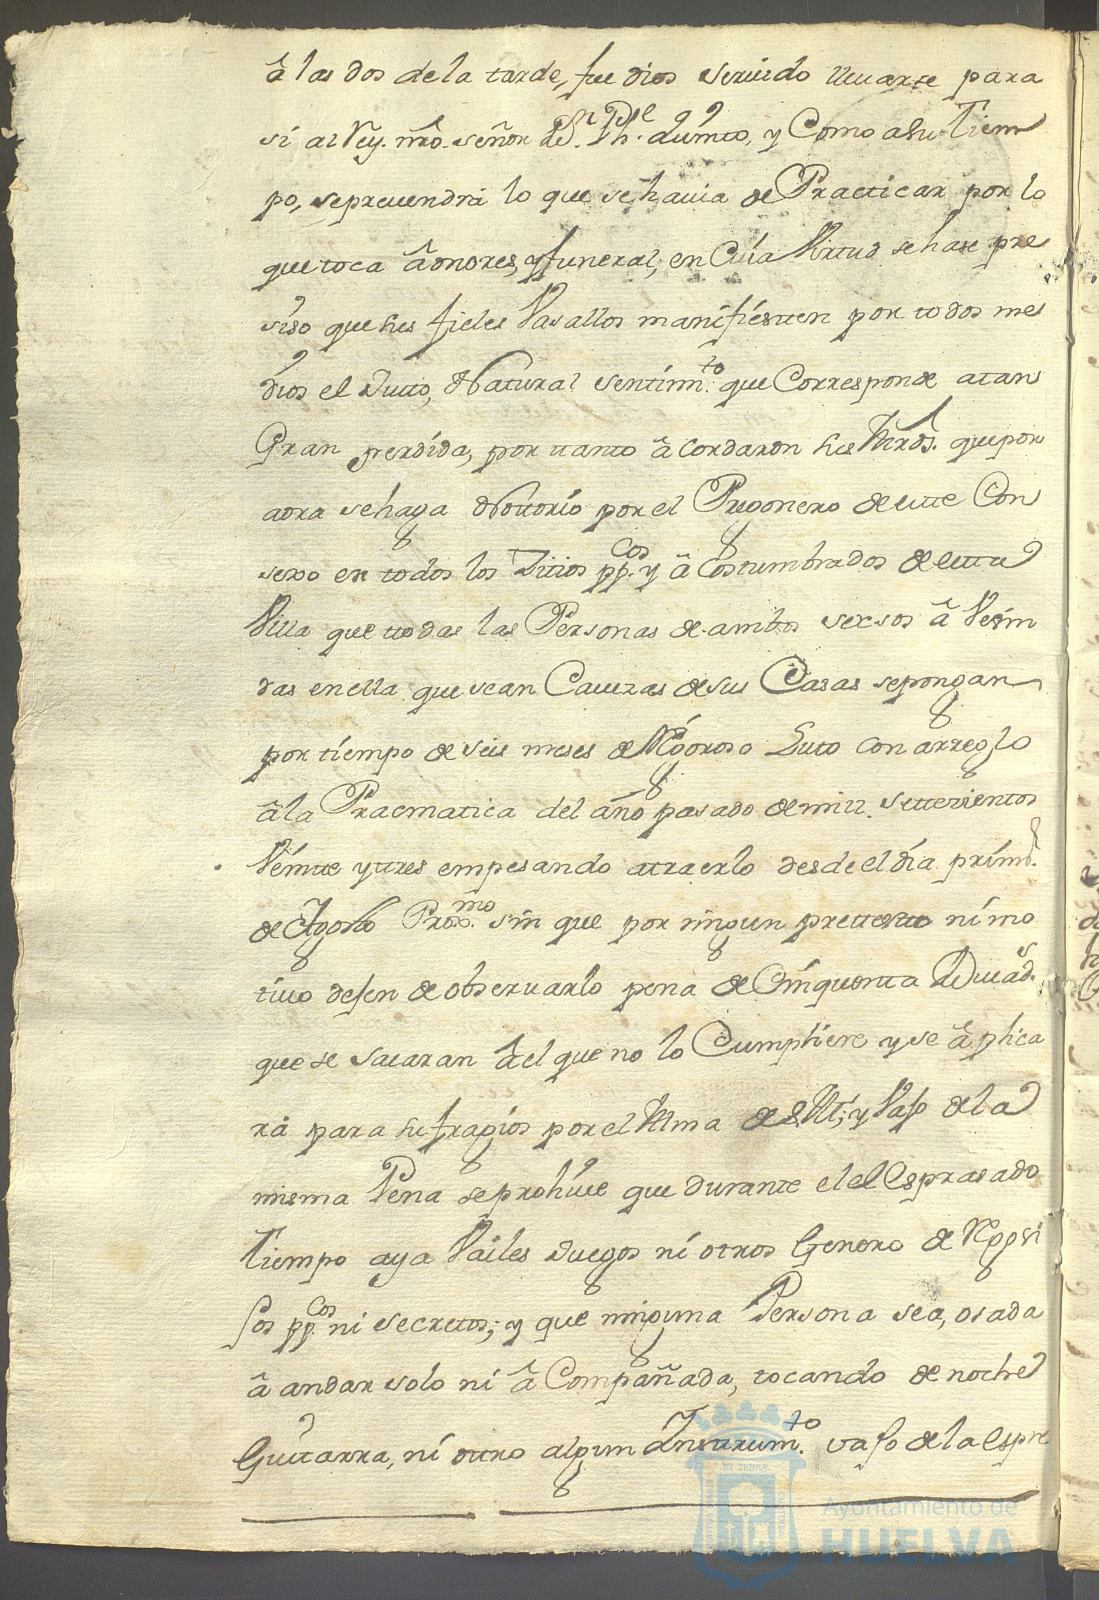 â las dos de la tarde, fue dios servido llevarse para
si al Rey. nrô. señor Dn. Phe. quinto, y Como a su Tiem
po, se prevendrá lo que se havia de Practicar por lo
que toca â onores, y funeral, en Cuía Virtud se hase pre
siso que sus fieles Vasallos manifiesten por todos me
dios el Justo, Natural sentimto. que Corresponde a tan
Gran perdida, por tanto â cordaron sus Mrds. que por
aora se haga Nottorio por el Pregonero de este Con
sexo en todos los Sitios ppcos. y â Costumbrados de esta
Villa que todas las Personas de ambos sexsos â Vesin
das en ella que sean Cavezas de sus Casas se pongan
por tiempo de seis meses de Rigoroso Luto con arreglo
â la Pracmatica del año pasado de mill. settezientos
Veinte y tres empesando a traerlo desde el día primo.
de Agosto Proxmo. sin que por ningun prettesto ní mo
tivo dejen de observarlo pena de Cinquenta Ducads.
que se sacaran âel que no lo Cumpliere y se â plica
rá para sufragios por el Alma de S M; y Vajo de la
misma Pena se prohive que durante el el Espresado
Tiempo aya Vailes Juegos ní otros Genero de Regosi
Jos ppcos ni secretos; y que ninguna Persona sea, osada
â andar solo ni â Compañada, tocando de noche
Guitarra, ní otro algun Instrumto. vajo de la Espre
Ayuntamiento de
HUELVA